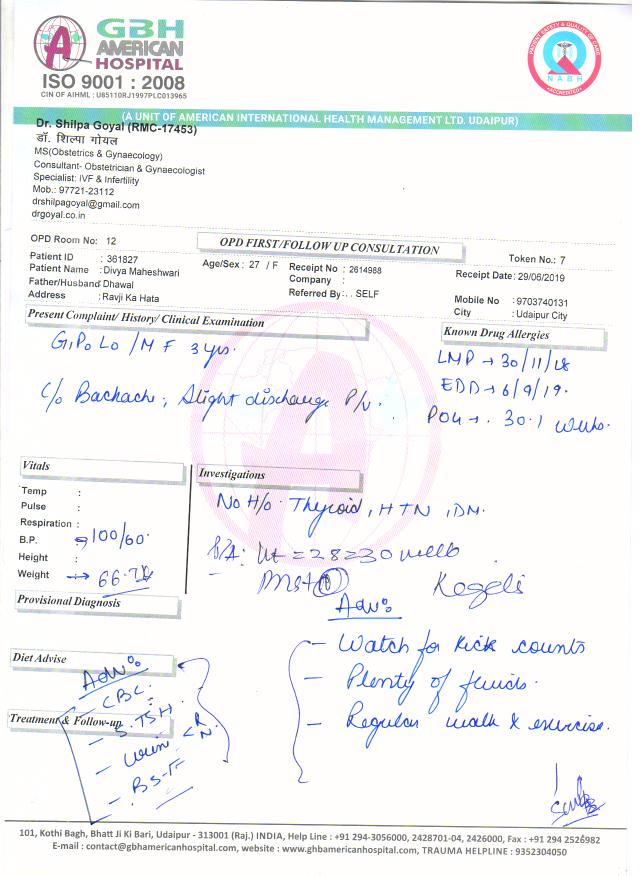 GBH
AMERICAN
HOSPITAL
ISO 9001 : 2008
CIN OF AIHML : U85110RJ1997PLC013965
PATIENT SAFETY & QUALITY OF CARE
NABH
ACCREDITED
(A UNIT OF AMERICAN INTERNATIONAL HEALTH MANAGEMENT LTD. UDAIPUR)
Dr. Shilpa Goyal (RMC-17453)
डॉ. शिल्पा गोयल
MS(Obstetrics & Gynaecology)
Consultant- Obstetrician & Gynaecologist
Specialist: IVF & Infertility
Mob.: 97721-23112
drshilpagoyal@gmail.com
drgoyal.co.in
OPD Room No: 12
OPD FIRST/FOLLOW UP CONSULTATION
Token No.: 7
Patient ID : 361827
Age/Sex : 27 / F
Receipt No : 2614988
Receipt Date: 29/06/2019
Patient Name : Divya Maheshwari
Company :
Father/Husband Dhawal
Referred By: . . SELF
Mobile No : 9703740131
Address : Ravji Ka Hata
City : Udaipur City
Present Complaint/ History/ Clinical Examination
Known Drug Allergies
G1P0L0 / MF 3 yrs.
LMP → 30/11/18
EDD → 6/9/19.
C/o Backache, Slight discharge P/v.
POG → 30.1 weeks.
Vitals
Investigations
Temp :
Pulse :
Respiration :
B.P. 100/60
Height :
Weight → 66.7
No H/o Thyroid, HTN, DM.
P/A: Ut = 28-30 weeks
Kegels
Provisional Diagnosis
Adv:
- Watch for kick counts
- Plenty of fluids.
- Regular walk & exercise.
Diet Advise
Adv:
- CBC
Treatment & Follow-up
- S.TSH
- Urine R N
- BS-F
101, Kothi Bagh, Bhatt Ji Ki Bari, Udaipur - 313001 (Raj.) INDIA, Help Line : +91 294-3056000, 2428701-04, 2426000, Fax : +91 294 2526982
E-mail : contact@gbhamericanhospital.com, website : www.gbhamericanhospital.com, TRAUMA HELPLINE : 9352304050